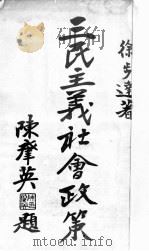 徐步達著
三民主義社會政策
陳肇英題